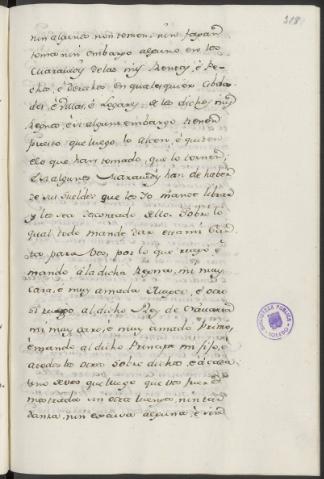 318
nin alguno non tomen, nin fagan
toma nin embargo alguno en los
maravedis de las mis Rentas, é Pe-
chos, é derechos en qualesquier Cibda-
des é villas, é Logares de los dichos mis
Regnos, é si algun embargo tienen
puesto que luego lo alcen, é quiten
é lo que han tomado, que lo tornen;
é si algunos maravedis han de haber
de su sueldo que les Yo mande librar
y les sea descontado dello sobre lo
qual todo mandé dar esta mi Car-
ta para Vos, por lo que ruego é
mando á la dicha Reyna, mi muy
cara, é muy amada Muger, é otro
si ruego al dicho Rey de Navarra
mi muy caro, é muy amado Primo,
é mando al dicho Principe mi fijo, é
a todos los otros sobre dichos, é á cada
uno de vos que luego que vos fuere
mostrada sin otra luenga, nin tar-
danza, nin escusa alguna, é sin
BIBLIOTECA PUBLICA
TOLEDO